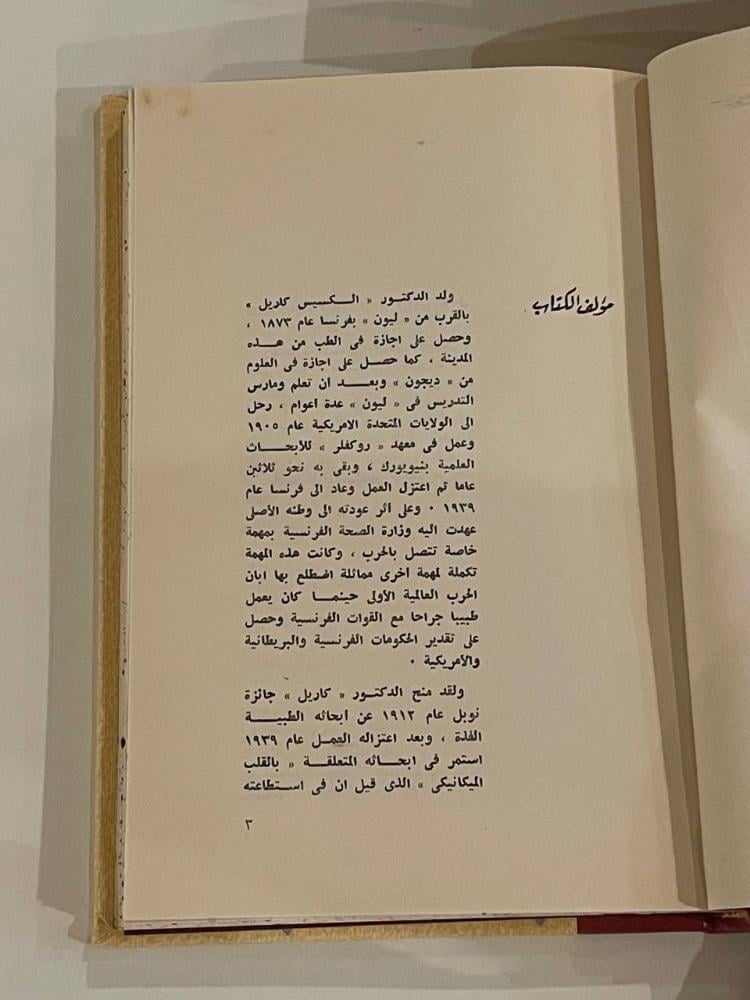 مؤلف الكتاب
ولد الدكتور « الكسيس كاريل »
بالقرب من « ليون » بفرنسا عام ١٨٧٣ ،
وحصل على اجازة فى الطب من هذه
المدينة ، كما حصل على اجازة فى العلوم
من « ديجون » وبعد أن تعلم ومارس
التدريس فى « ليون » عدة أعوام ، رحل
الى الولايات المتحدة الامريكية عام ١٩٠٥
وعمل فى معهد « روكفلر » للأبحاث
العلمية بنيويورك ، وبقى به نحو ثلاثين
عاما ثم اعتزل العمل وعاد الى فرنسا عام
١٩٣٩ ٠ وعلى أثر عودته الى وطنه الأصلى
عهدت اليه وزارة الصحة الفرنسية بمهمة
خاصة تتصل بالحرب ، وكانت هذه المهمة
تكملة لمهمة أخرى مماثلة اضطلع بها ابان
الحرب العالمية الأولى حينما كان يعمل
طبيبا جراحا مع القوات الفرنسية وحصل
على تقدير الحكومات الفرنسية والبريطانية
والأمريكية ٠
ولقد منح الدكتور « كاريل » جائزة
نوبل عام ١٩١٢ عن أبحاثه الطبية
الفذة ، وبعد اعتزاله العمل عام ١٩٣٩
استمر فى ابحاثه المتعلقة « بالقلب
الميكانيكى » الذى قيل ان فى استطاعته
٣